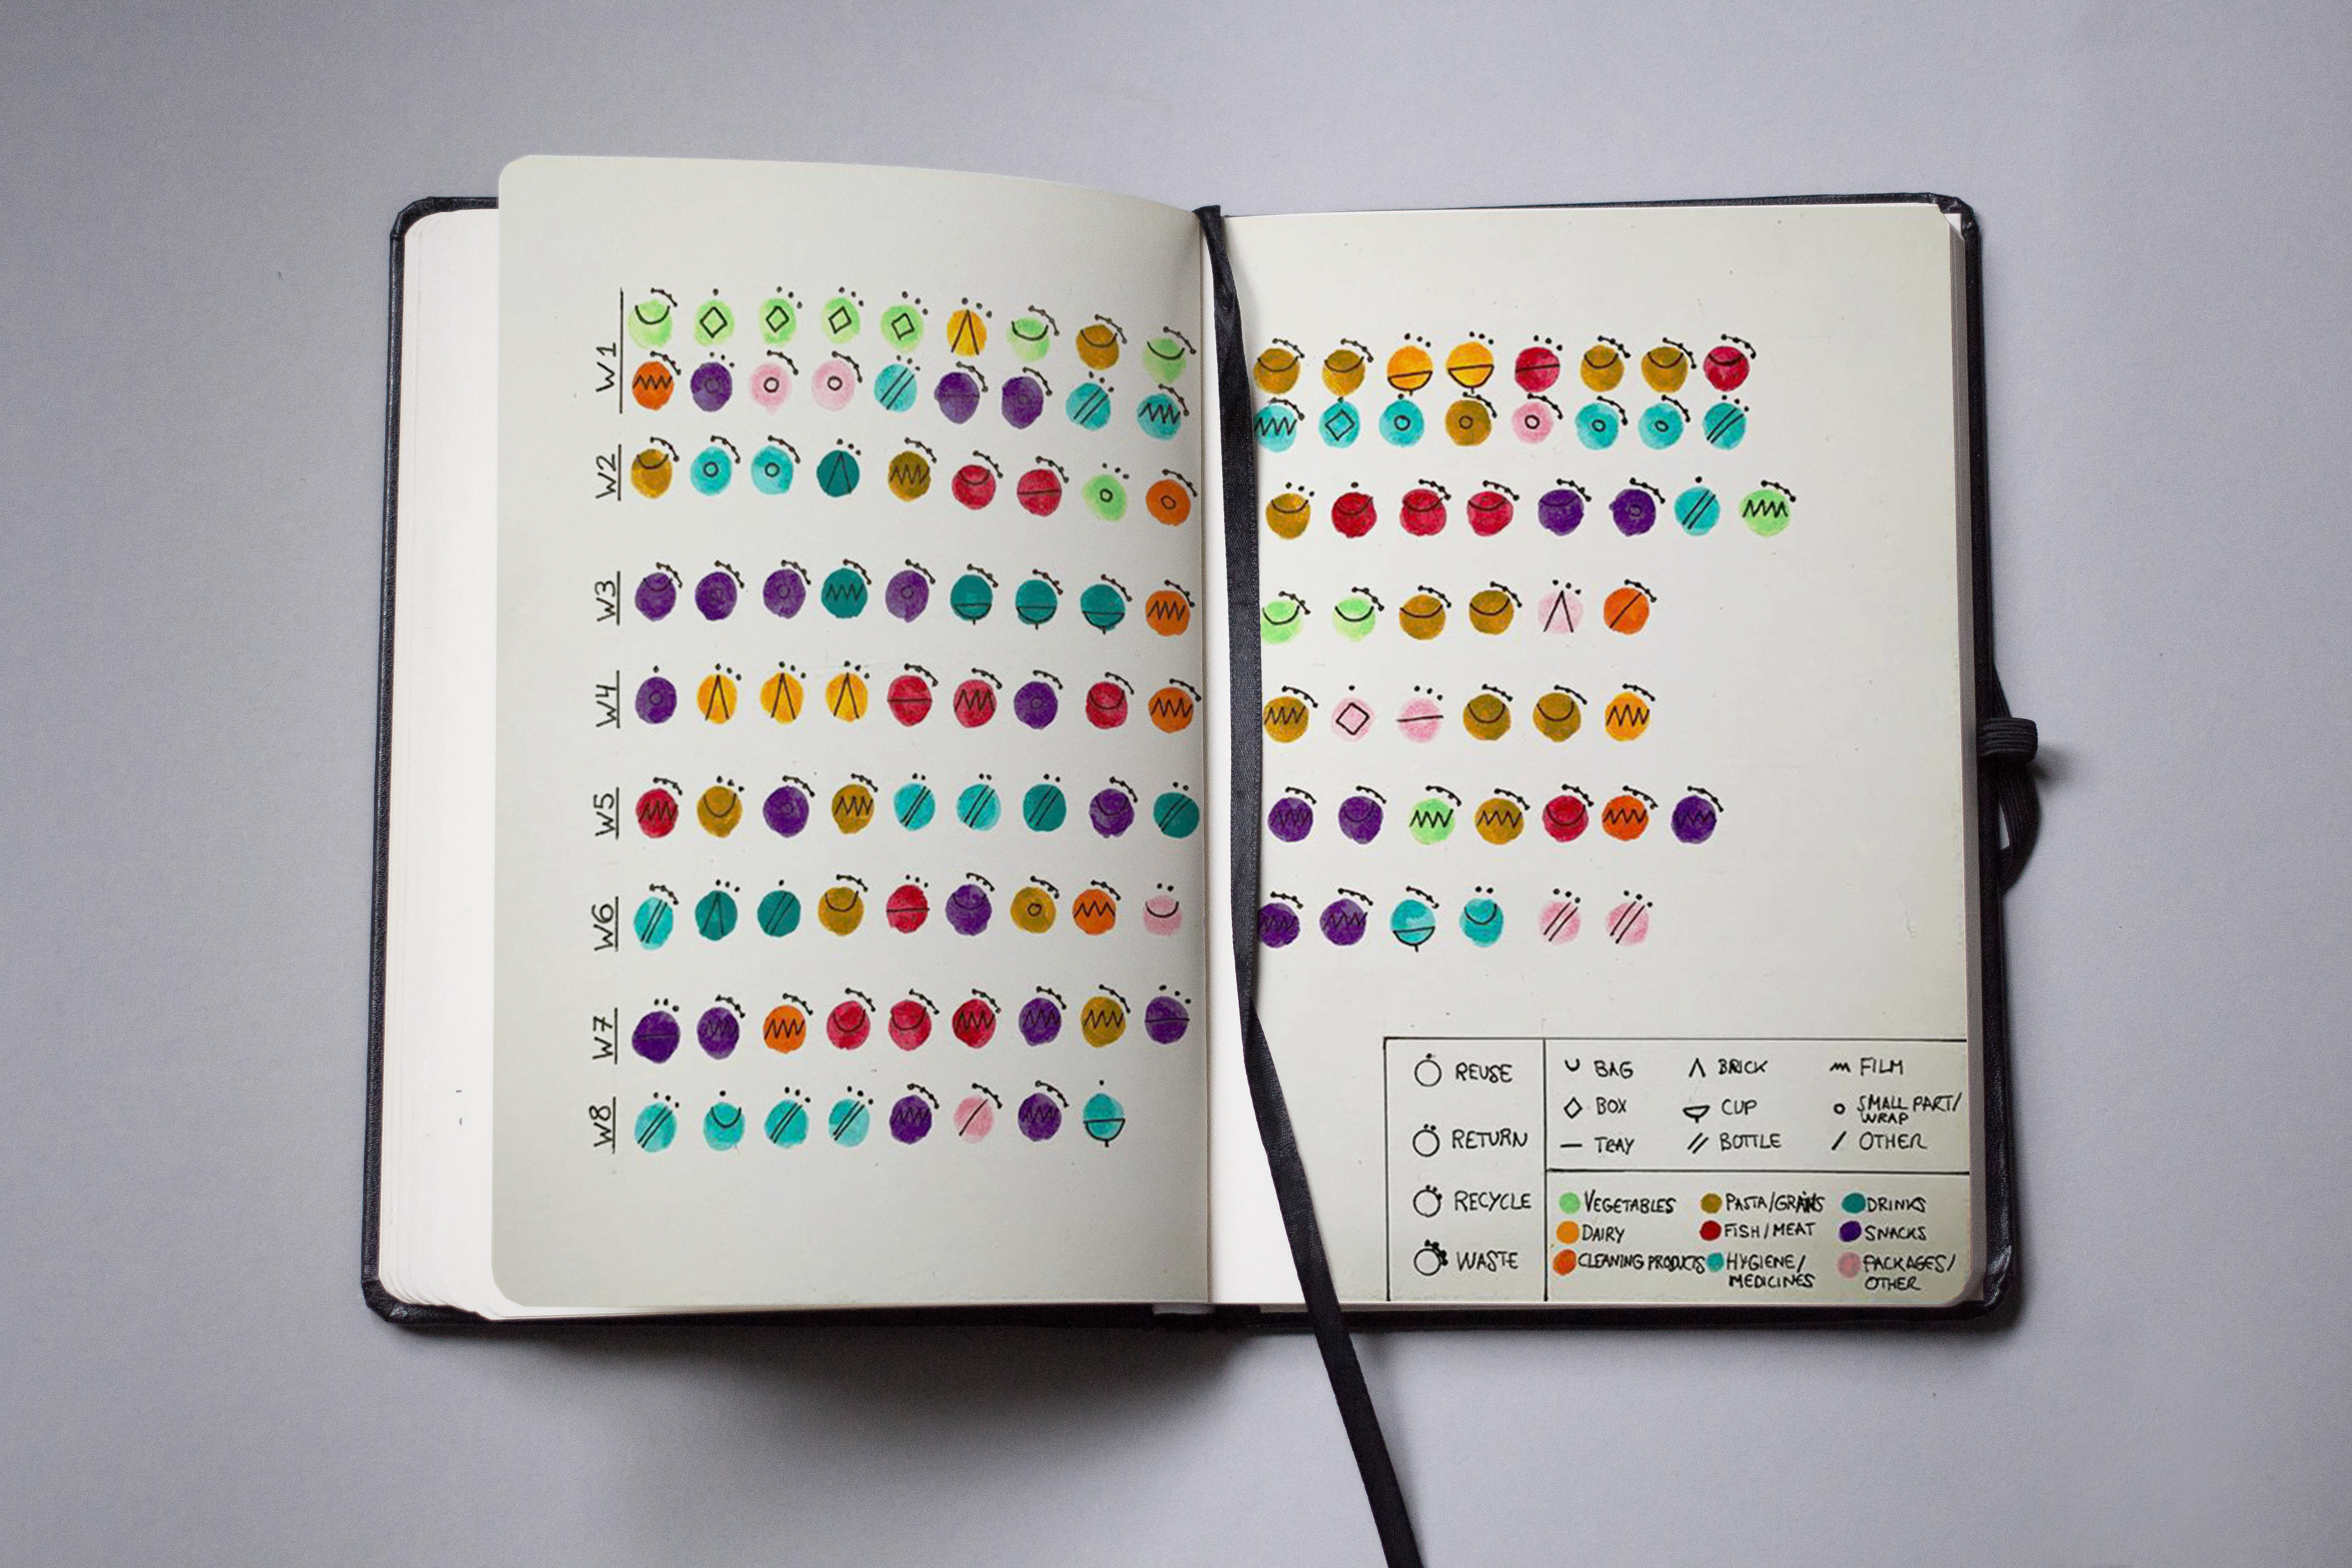 W1
W2
W3
W4
W5
W6
W7
W8
REUSE
RETURN
RECYCLE
WASTE
BAG BRICK FILM
BOX CUP SMALL PART/
WRAP
TRAY BOTTLE OTHER
VEGETABLES PASTA/GRAINS DRINKS
DAIRY FISH/MEAT SNACKS
CLEANING PRODUCTS HYGIENE/ PACKAGES/
MEDICINES OTHER